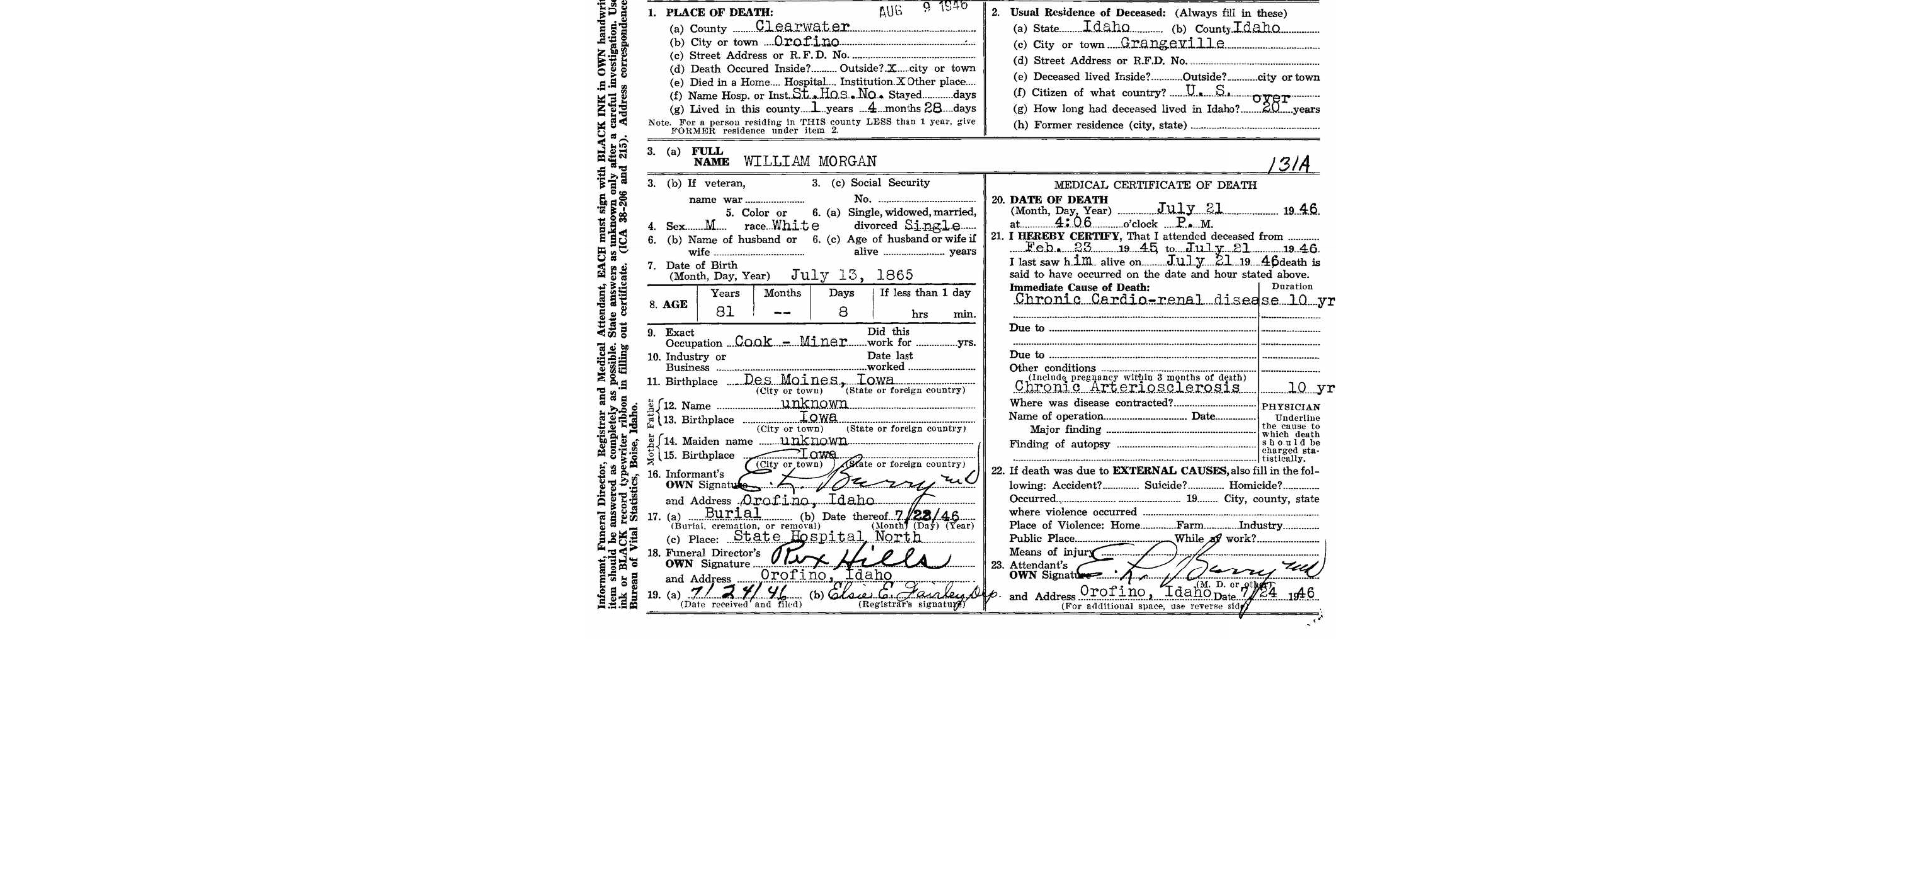 Informant, Funeral Director, Registrar and Medical Attendant, EACH must sign with BLACK INK in OWN handwri
item should be answered as completely as possible. State answers as unknown only after a careful investigation. Use
ink or BLACK record typewriter ribbon in filling out certificate. (ICA 38-206 and 215). Address correspondence
Bureau of Vital Statistics, Boise, Idaho.
AUG 9 1946
1. PLACE OF DEATH:
(a) County Clearwater
(b) City or town Orofino
(c) Street Address or R.F.D. No.
(d) Death Occured Inside? Outside? X city or town
(e) Died in a Home Hospital Institution X Other place
(f) Name Hosp. or Inst. St. Hos. No. Stayed days
(g) Lived in this county 1 years 4 months 28 days
Note. For a person residing in THIS county LESS than 1 year, give
FORMER residence under item 2.
2. Usual Residence of Deceased: (Always fill in these)
(a) State Idaho (b) County Idaho
(c) City or town Grangeville
(d) Street Address or R.F.D. No.
(e) Deceased lived Inside? Outside? city or town
(f) Citizen of what country? U. S.
(g) How long had deceased lived in Idaho? over 20 years
(h) Former residence (city, state)
3. (a) FULL
NAME WILLIAM MORGAN
131A
3. (b) If veteran, 3. (c) Social Security
name war No.
5. Color or 6. (a) Single, widowed, married,
4. Sex M race White divorced Single
6. (b) Name of husband or 6. (c) Age of husband or wife if
wife alive years
7. Date of Birth
(Month, Day, Year) July 13, 1865
8. AGE Years Months Days If less than 1 day
81 -- 8 hrs min.
9. Exact Did this
Occupation Cook - Miner work for yrs.
10. Industry or Date last
Business worked
11. Birthplace Des Moines, Iowa
(City or town) (State or foreign country)
Father
12. Name unknown
13. Birthplace Iowa
(City or town) (State or foreign country)
Mother
14. Maiden name unknown
15. Birthplace Iowa
(City or town) (State or foreign country)
16. Informant's
OWN Signature E. L. Burry md
and Address Orofino, Idaho
17. (a) Burial (b) Date thereof 7/23/46
(Burial, cremation, or removal) (Month) (Day) (Year)
(c) Place: State Hospital North
18. Funeral Director's
OWN Signature Rex Hills
and Address Orofino, Idaho
19. (a) 7/24/46 (b) Elsie E. Fairley Dep.
(Date received and filed) (Registrar's signature)
MEDICAL CERTIFICATE OF DEATH
20. DATE OF DEATH
(Month, Day, Year) July 21 1946.
at 4:06 o'clock P. M.
21. I HEREBY CERTIFY, That I attended deceased from
Feb. 23 1945 to July 21 1946.
I last saw him alive on July 21 1946 death is
said to have occurred on the date and hour stated above.
Immediate Cause of Death: Duration
Chronic Cardio-renal disease 10 yr
Due to
Due to
Other conditions
(Include pregnancy within 3 months of death)
Chronic Arteriosclerosis 10 yr
Where was disease contracted?
Name of operation Date
Major finding
Finding of autopsy
PHYSICIAN
Underline
the cause to
which death
should be
charged sta-
tistically.
22. If death was due to EXTERNAL CAUSES, also fill in the fol-
lowing: Accident? Suicide? Homicide?
Occurred 19 City, county, state
where violence occurred
Place of Violence: Home Farm Industry
Public Place While at work?
Means of injury
23. Attendant's
OWN Signature E. L. Burry md
(M. D. or other)
and Address Orofino, Idaho Date 7/24 1946
(For additional space, use reverse side)